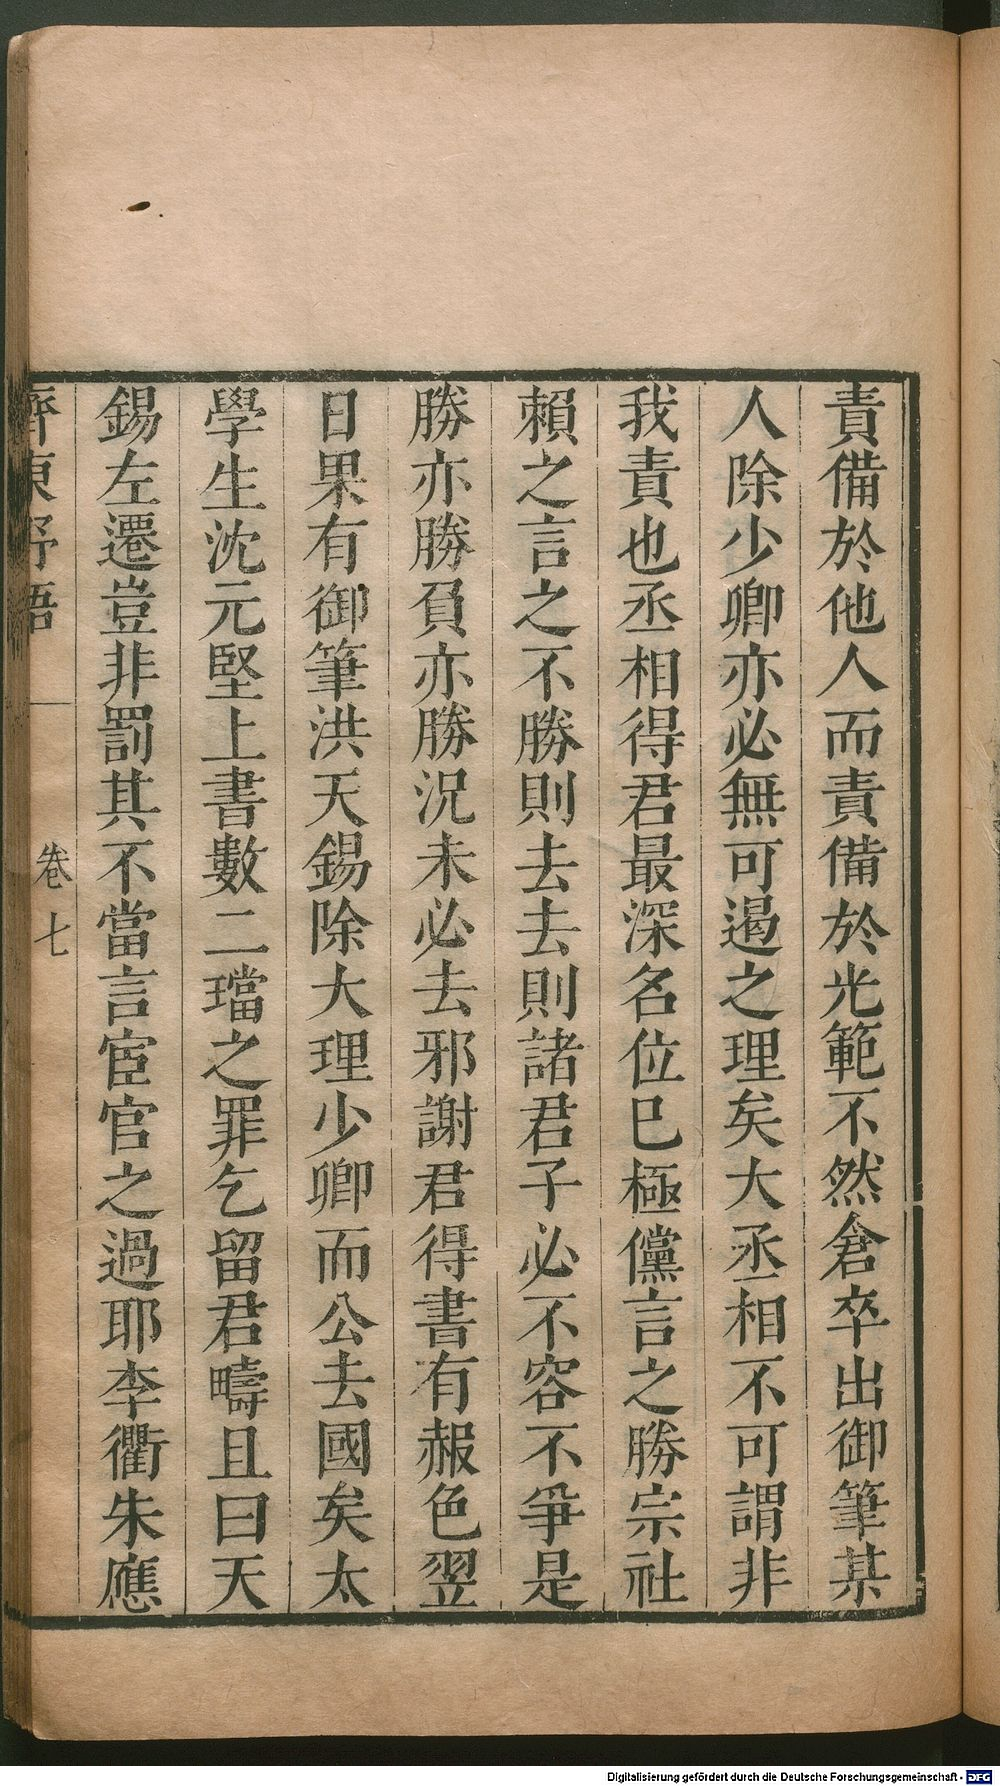 責備於他人而責備於光範不然倉卒出御筆某
人除少卿亦必無可遏之理矣大丞相不可謂非
我責也丞相得君最深名位巳極儻言之勝宗社
賴之言之不勝則去去則諸君子必不容不爭是
勝亦勝負亦勝況未必去邪謝君得書有赧色翌
日果有御筆洪天錫除大理少卿而公去國矣太
學生沈元堅上書數二璫之罪乞留君疇且曰天
錫左遷豈非罰其不當言宦官之過耶李衢朱應
齊東野語
卷七
Digitalisierung gefördert durch die Deutsche Forschungsgemeinschaft - DFG